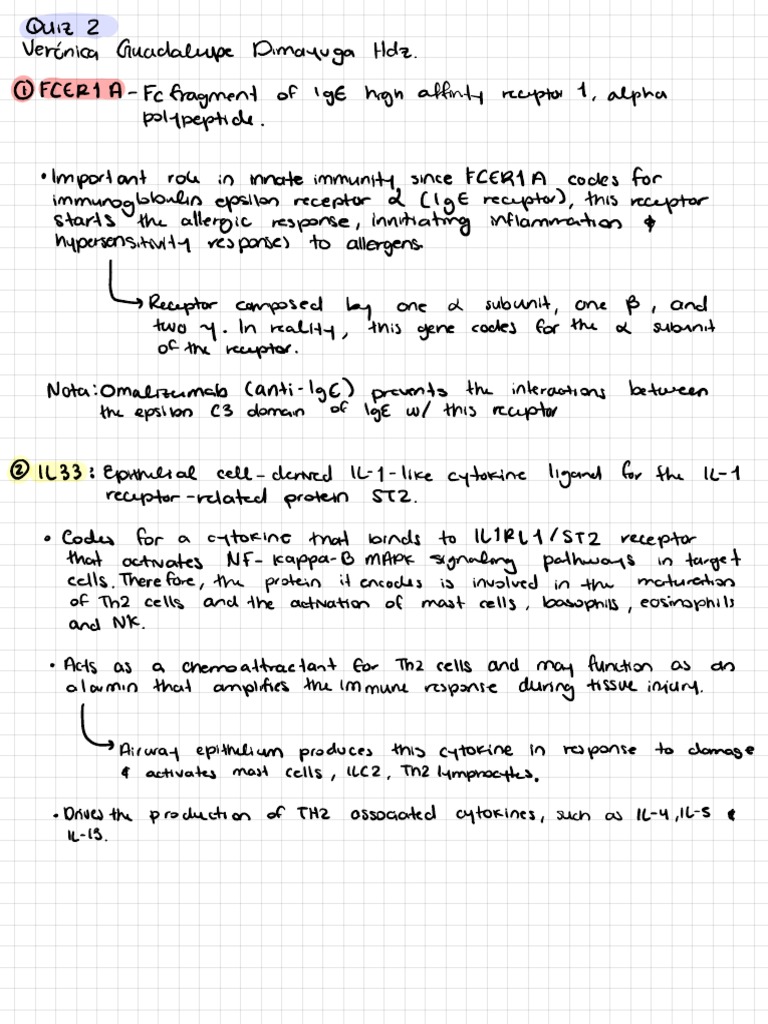 Quiz 2
Verónica Guadalupe Dimayuga Hdz.
① FCER1A - Fc fragment of IgE high affinity receptor 1, alpha
polypeptide.
• Important role in innate immunity, since FCER1A codes for
immunogbloulin epsilon receptor α (IgE receptor), this receptor
starts the allergic response, innitiating inflammation &
hypersensitivity responses to allergens.
Receptor composed by one α subunit, one β, and
two γ. In reality, this gene codes for the α subunit
of the receptor.
Nota: Omalizumab (anti-IgE) prevents the interactions between
the epsilon C3 domain of IgE w/ this receptor
② IL33: Epithelial cell-derived IL-1-like cytokine ligand for the IL-1
receptor-related protein ST2.
• Codes for a cytokine that binds to IL1RL1/ST2 receptor
that activates NF-kappa-B MAPK signaling pathways in target
cells. Therefore, the protein it encodes is involved in the maturation
of Th2 cells and the activation of mast cells, basophils, eosinophils
and NK.
• Acts as a chemoattractant for Th2 cells and may function as an
alarmin that amplifies the immune response during tissue injury.
Airway epithelium produces this cytokine in response to damage
& activates mast cells, ILC2, Th2 lymphocytes.
• Drives the production of TH2 associated cytokines, such as IL-4, IL-5 &
IL-13.